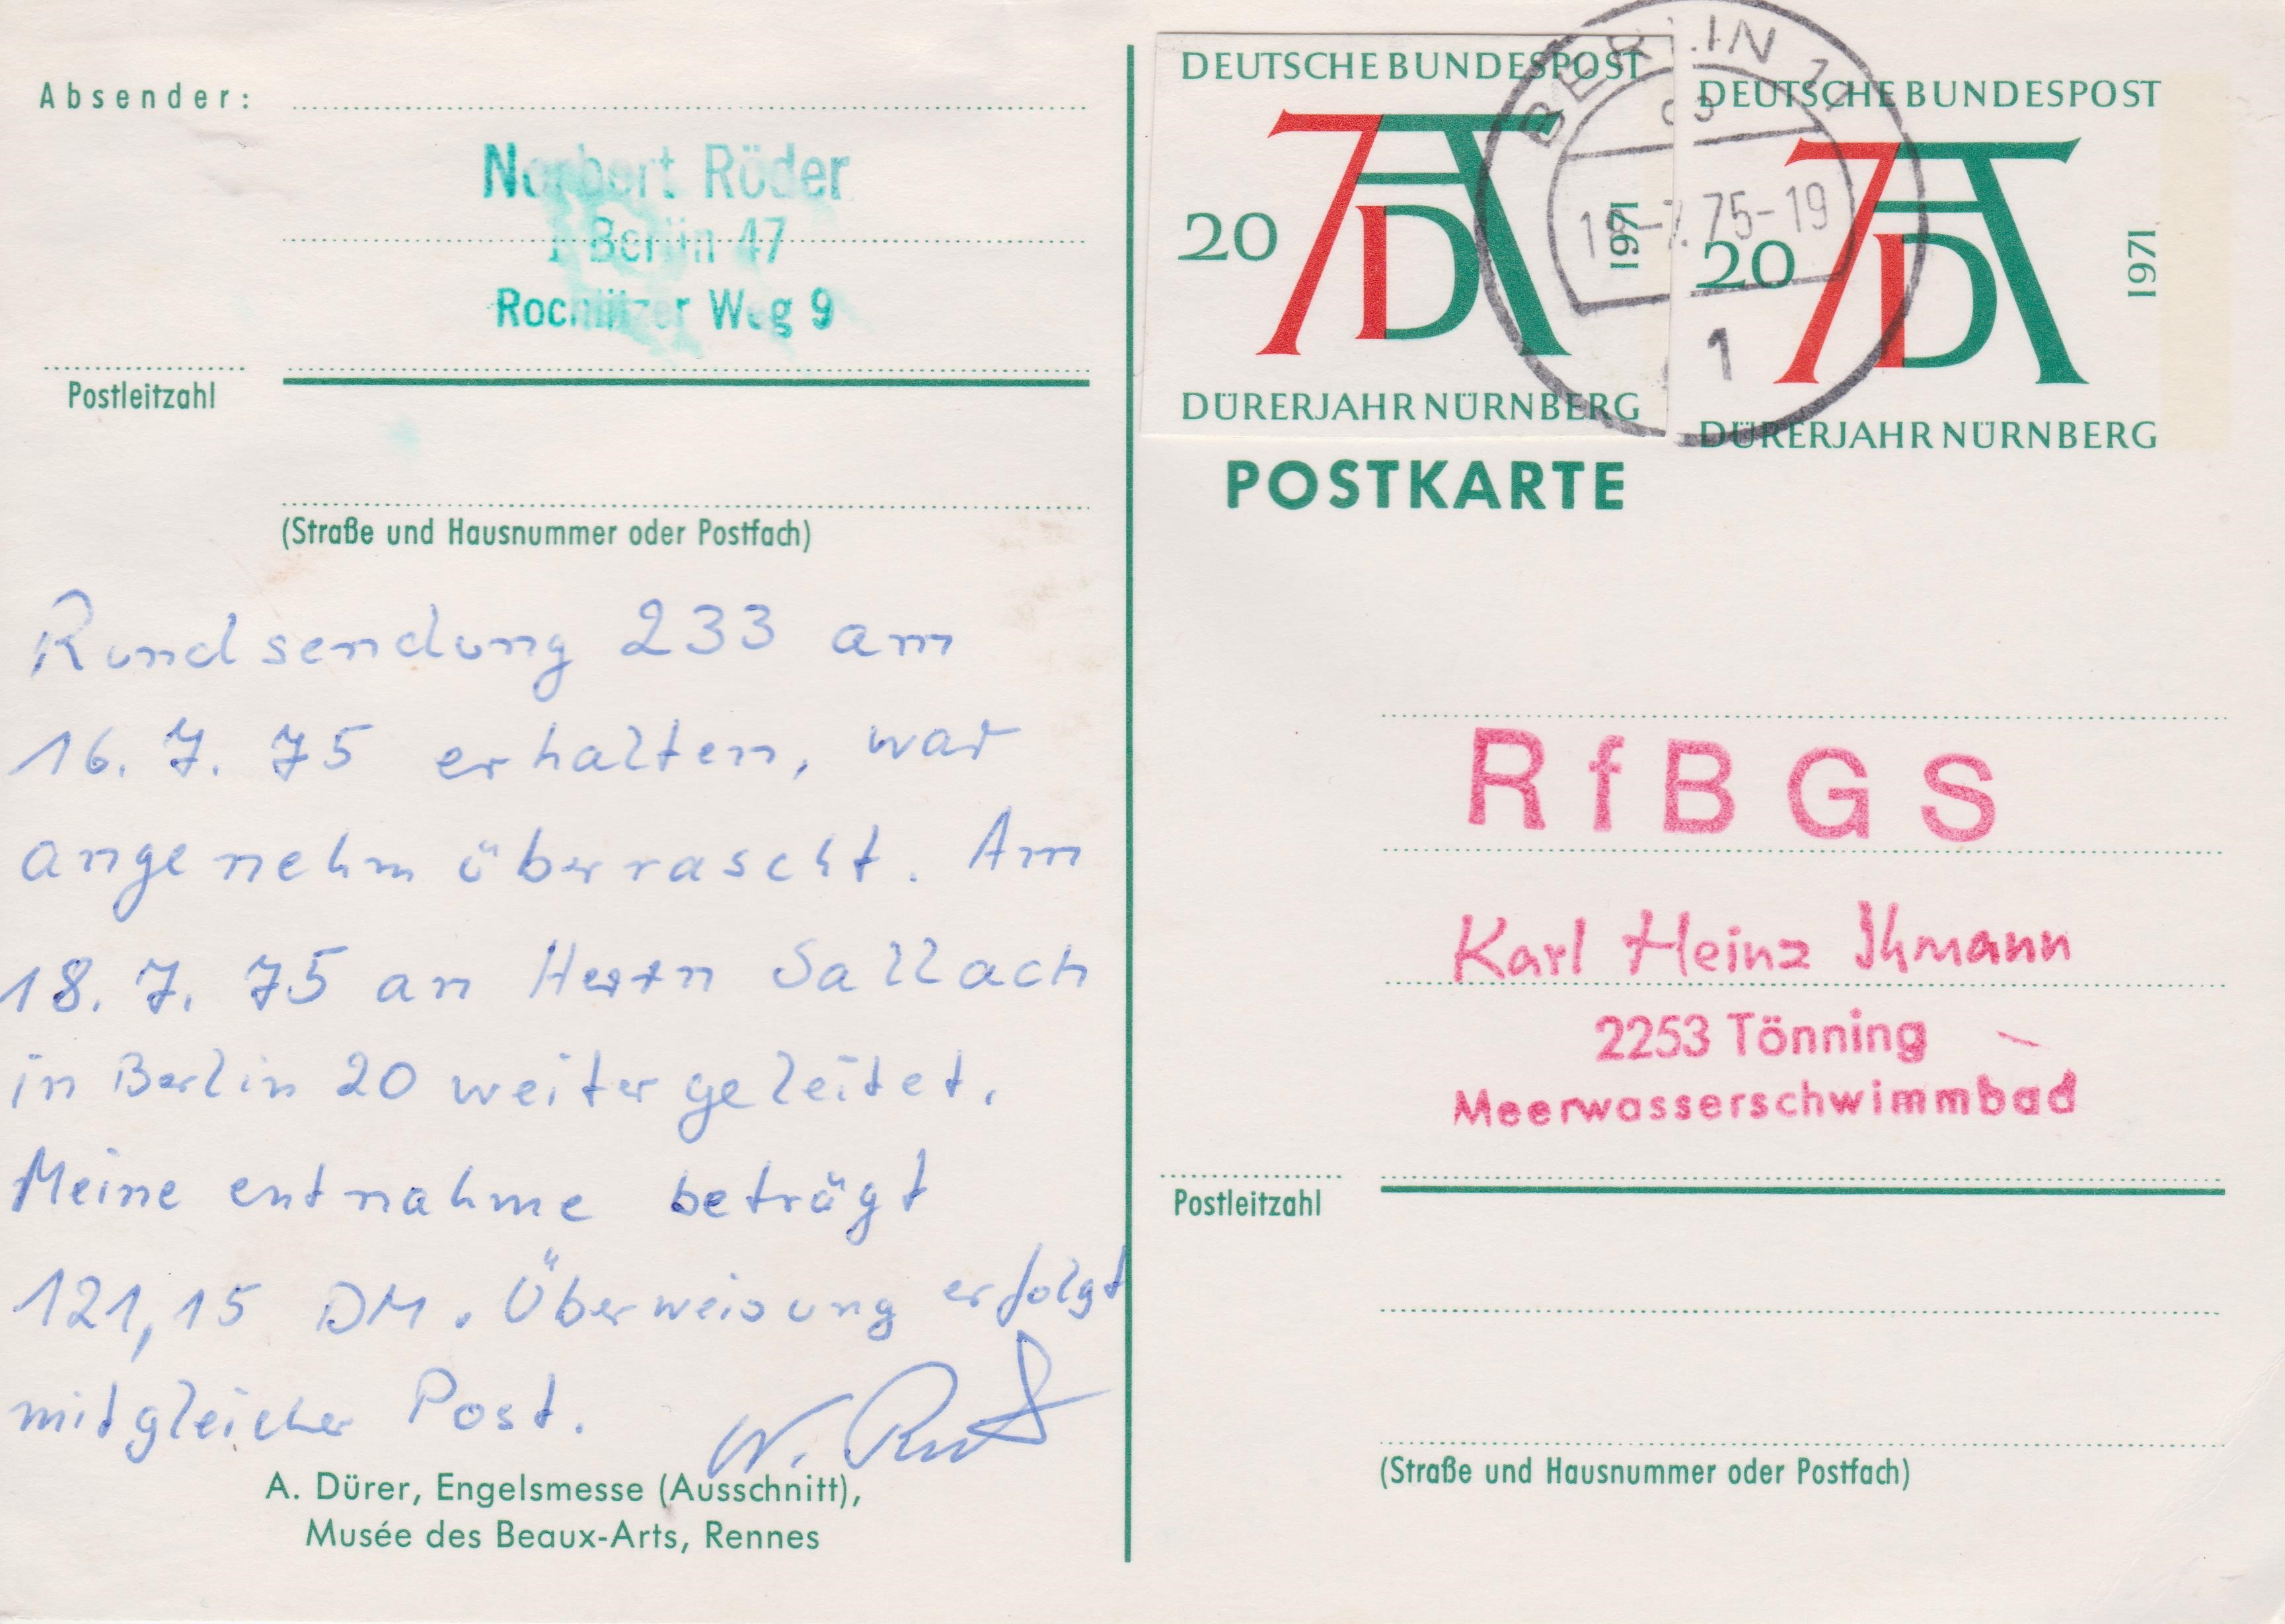 Absender:
Norbert Röder
1 Berlin 47
Rochlitzer Weg 9
Postleitzahl
(Straße und Hausnummer oder Postfach)
Rundsendung 233 am
16.7.75 erhalten, war
angenehm überrascht. Am
18.7.75 an Herrn Sallach
in Berlin 20 weitergeleitet.
Meine entnahme beträgt
121,15 DM. Überweisung erfolgt
mit gleicher Post.
A. Dürer, Engelsmesse (Ausschnitt),
Musée des Beaux-Arts, Rennes
DEUTSCHE BUNDESPOST
20
1971
DÜRERJAHR NÜRNBERG
DEUTSCHE BUNDESPOST
20
1971
DÜRERJAHR NÜRNBERG
BERLIN 11
18.-7.75-19
1
POSTKARTE
RfBGS
Karl Heinz Ihmann
2253 Tönning
Meerwasserschwimmbad
Postleitzahl
(Straße und Hausnummer oder Postfach)